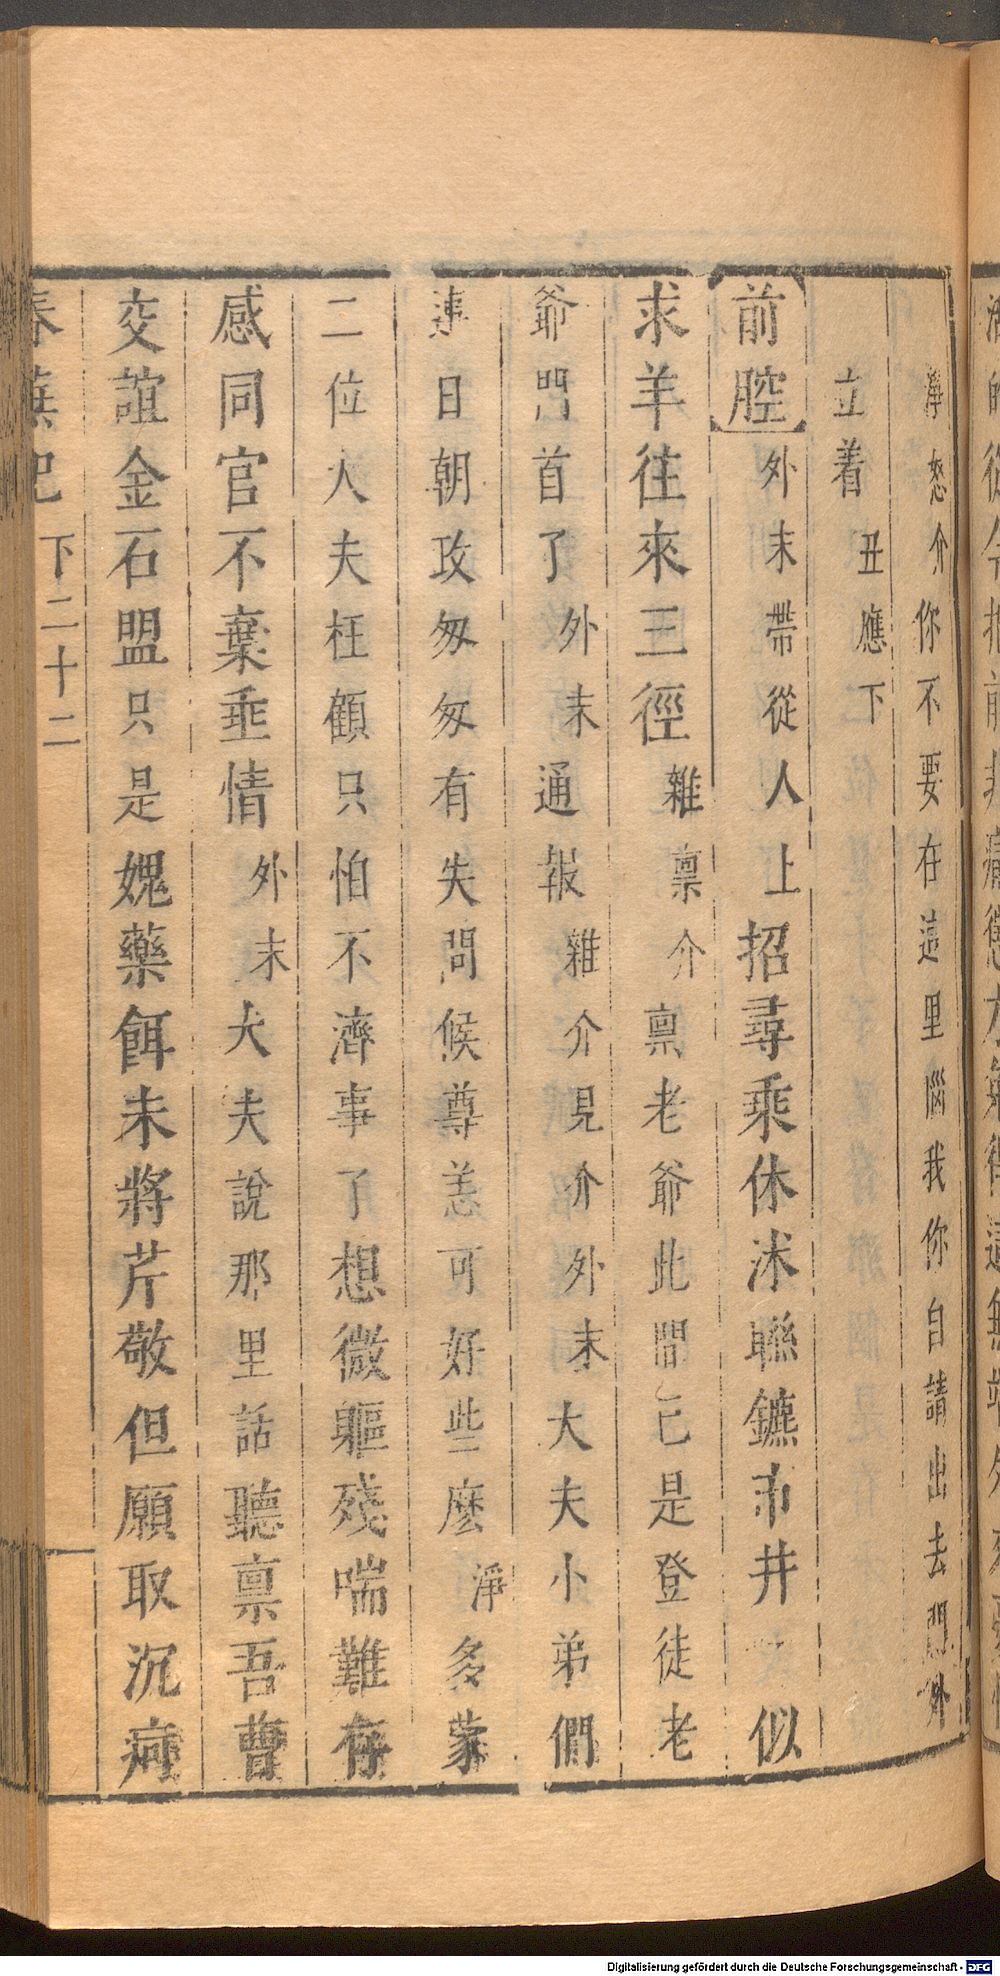 淨怒介你不要在這里惱我你自請出去門外
立着丑應下
前腔外末帶從人上招尋乘休沐聯鑣市井似
求羊往來三徑雜禀介禀老爺此間已是登徒老
爺門首了外末通報雜介見介外末大夫小弟們
連日朝政匆匆有失問候尊恙可好些麽淨多蒙
二位大夫枉顧只怕不濟事了想微軀殘喘難存
感同官不棄垂情外末大夫說那里話聽禀吾曹
交誼金石盟只是媿藥餌未將芹敬但願取沉痾
春蕪記 下二十二
Digitalisierung gefördert durch die Deutsche Forschungsgemeinschaft - DFG